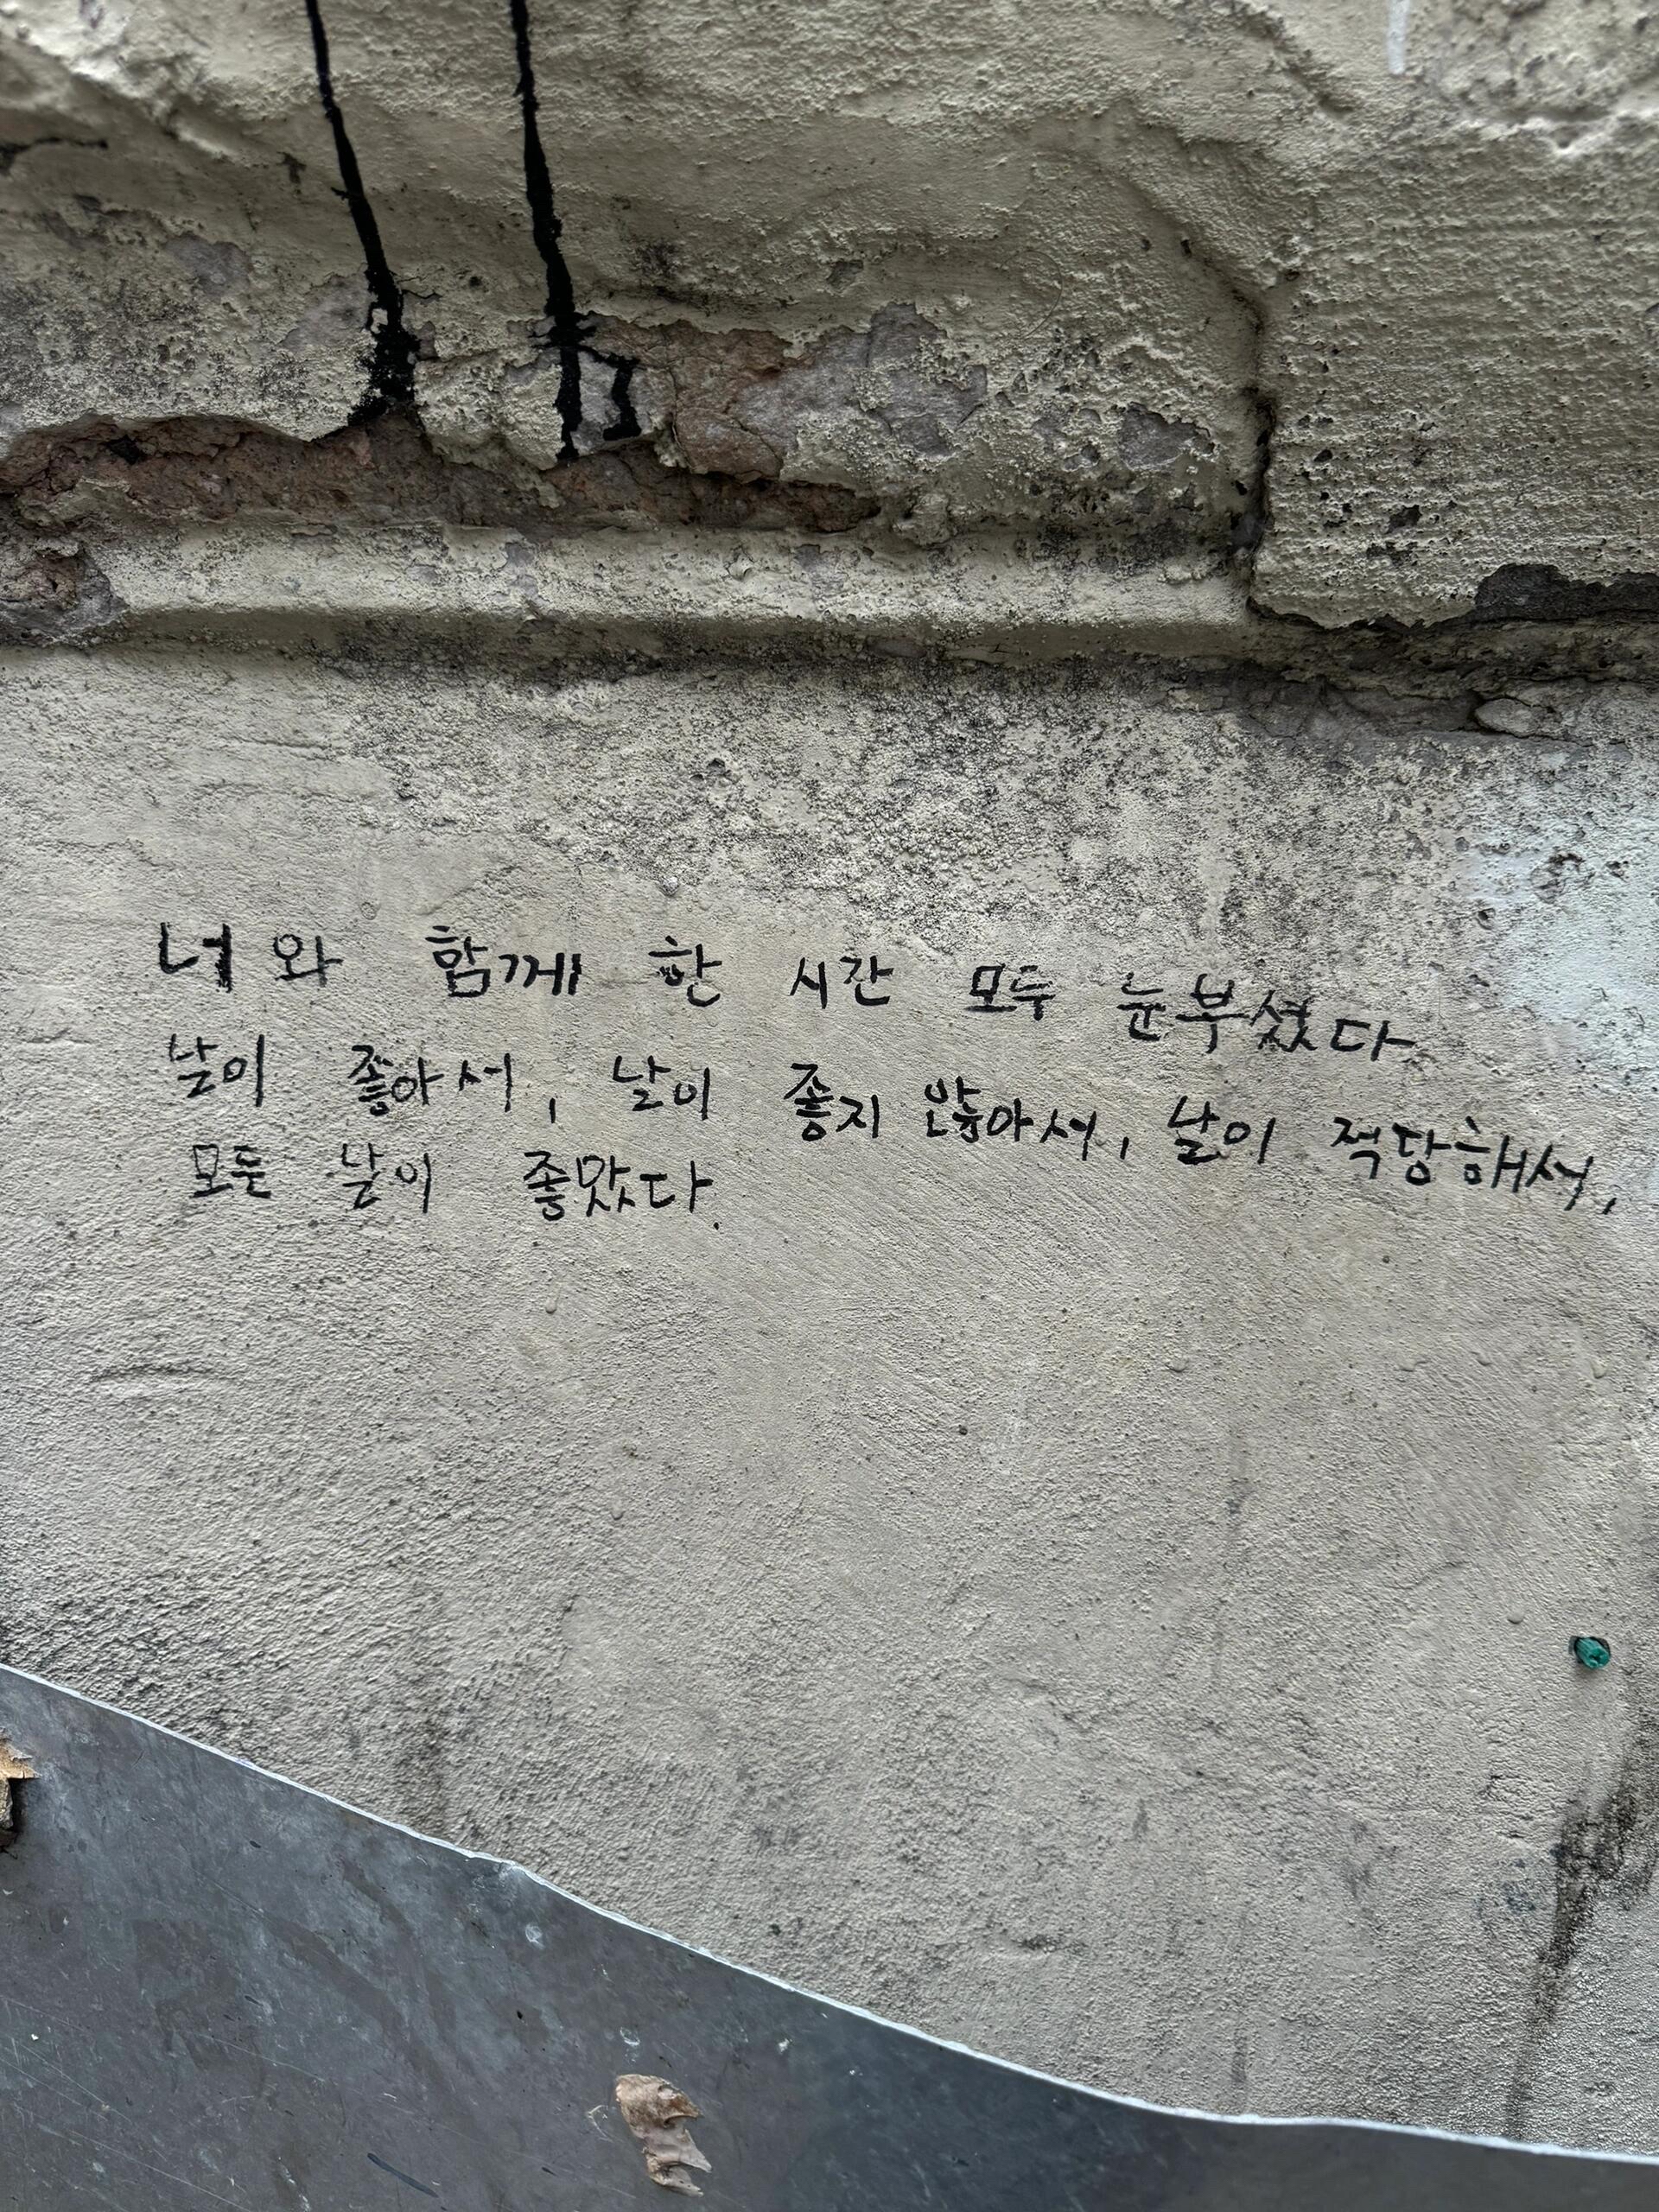 너와 함께 한 시간 모두 눈부셨다
날이 좋아서, 날이 좋지 않아서, 날이 적당해서,
모든 날이 좋았다.